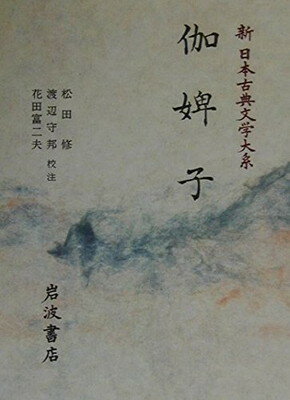 新 日本古典文学大系
伽婢子
松田 修
渡辺守邦 校注
花田富二夫
岩波書店